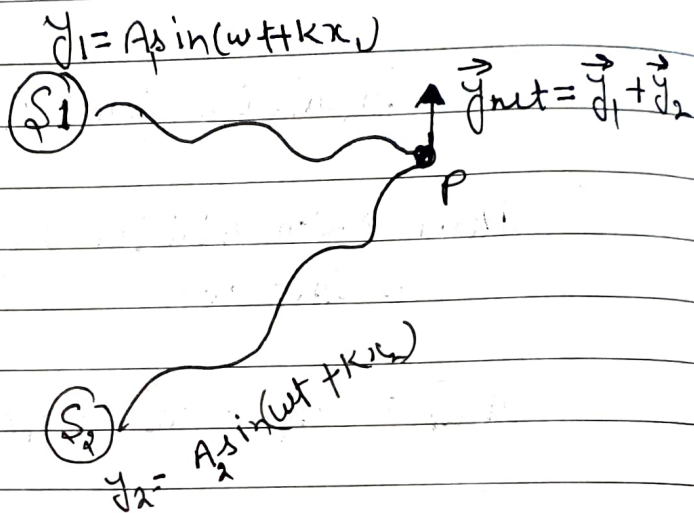 y₁ = A₁sin(wt+kx₁)
S1
y⃗net = y⃗₁ + y⃗₂
P
S₂
y₂ = A₂sin(wt+kx₂)